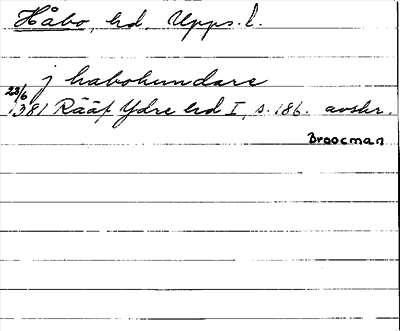 Håbo, hd, Upps. l.
j habohundare
23/6
1381 Rääf Ydre hd I, s. 186. avskr.
Broocman